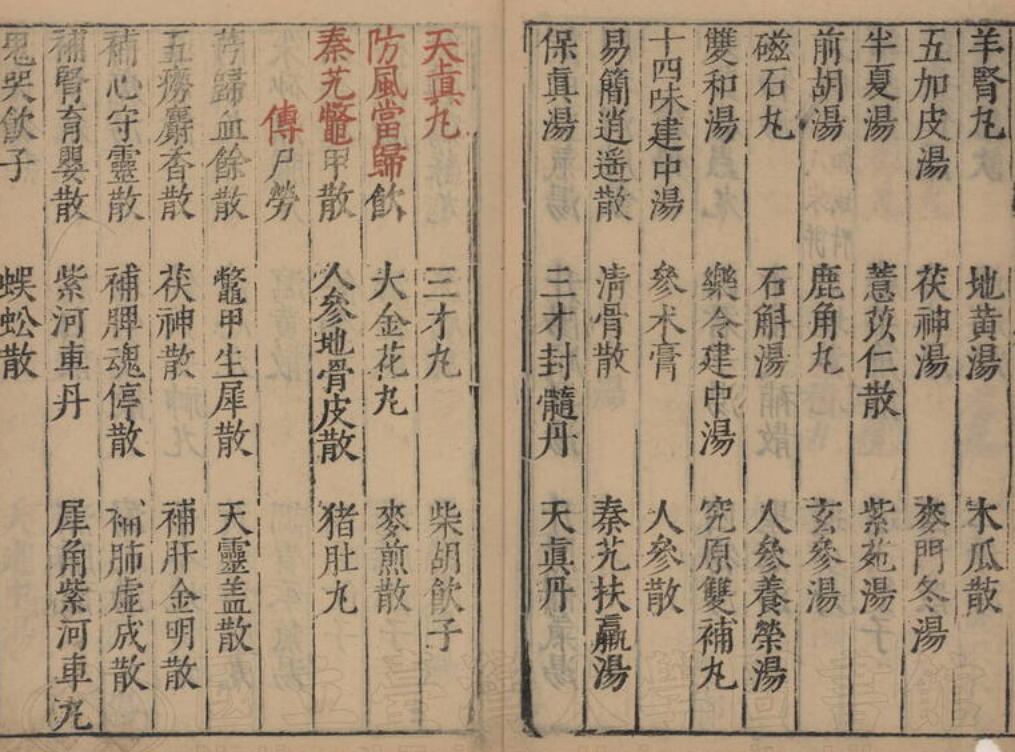 羊腎丸 地黄湯 木瓜散
五加皮湯 茯神湯 麥門冬湯
半夏湯 薏苡仁散 紫菀湯
前胡湯 鹿角丸 玄參湯
磁石丸 石斛湯 人參養榮湯
雙和湯 樂令建中湯 究原雙補丸
十四味建中湯 參朮膏 人參散
易簡逍遥散 清骨散 秦艽扶羸湯
保眞湯 三才封髓丹 天眞丹
天眞丸 三才丸 柴胡飲子
防風當歸飲 大金花丸 麥煎散
秦艽鼈甲散 人參地骨皮散 猪肚丸
傳尸勞
芎歸血餘散 鼈甲生犀散 天靈盖散
五癆麝香散 茯神散 補肝金明散
補心守靈散 補脾魂停散 補肺虛成散
補腎育嬰散 紫河車丹 犀角紫河車丸
鬼哭飲子 蜈蚣散